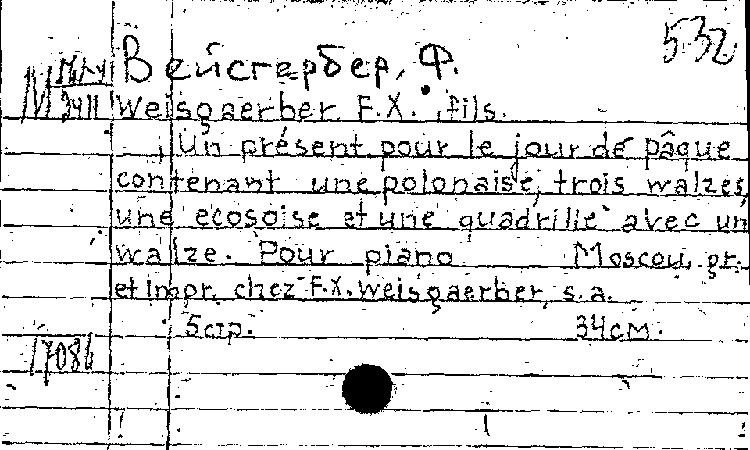 532
Вейсгербер, Ф.
М
2411
Weisgaerber F.X., fils.
Un présent pour le jour de pâque
contenant une polonaise, trois walzes,
une ecosoise et une quadrille avec un
walze. Pour piano Moscou, gr.
et impr. chez F.X. Weisgaerber, s.a.
5стр. 34см.
17086